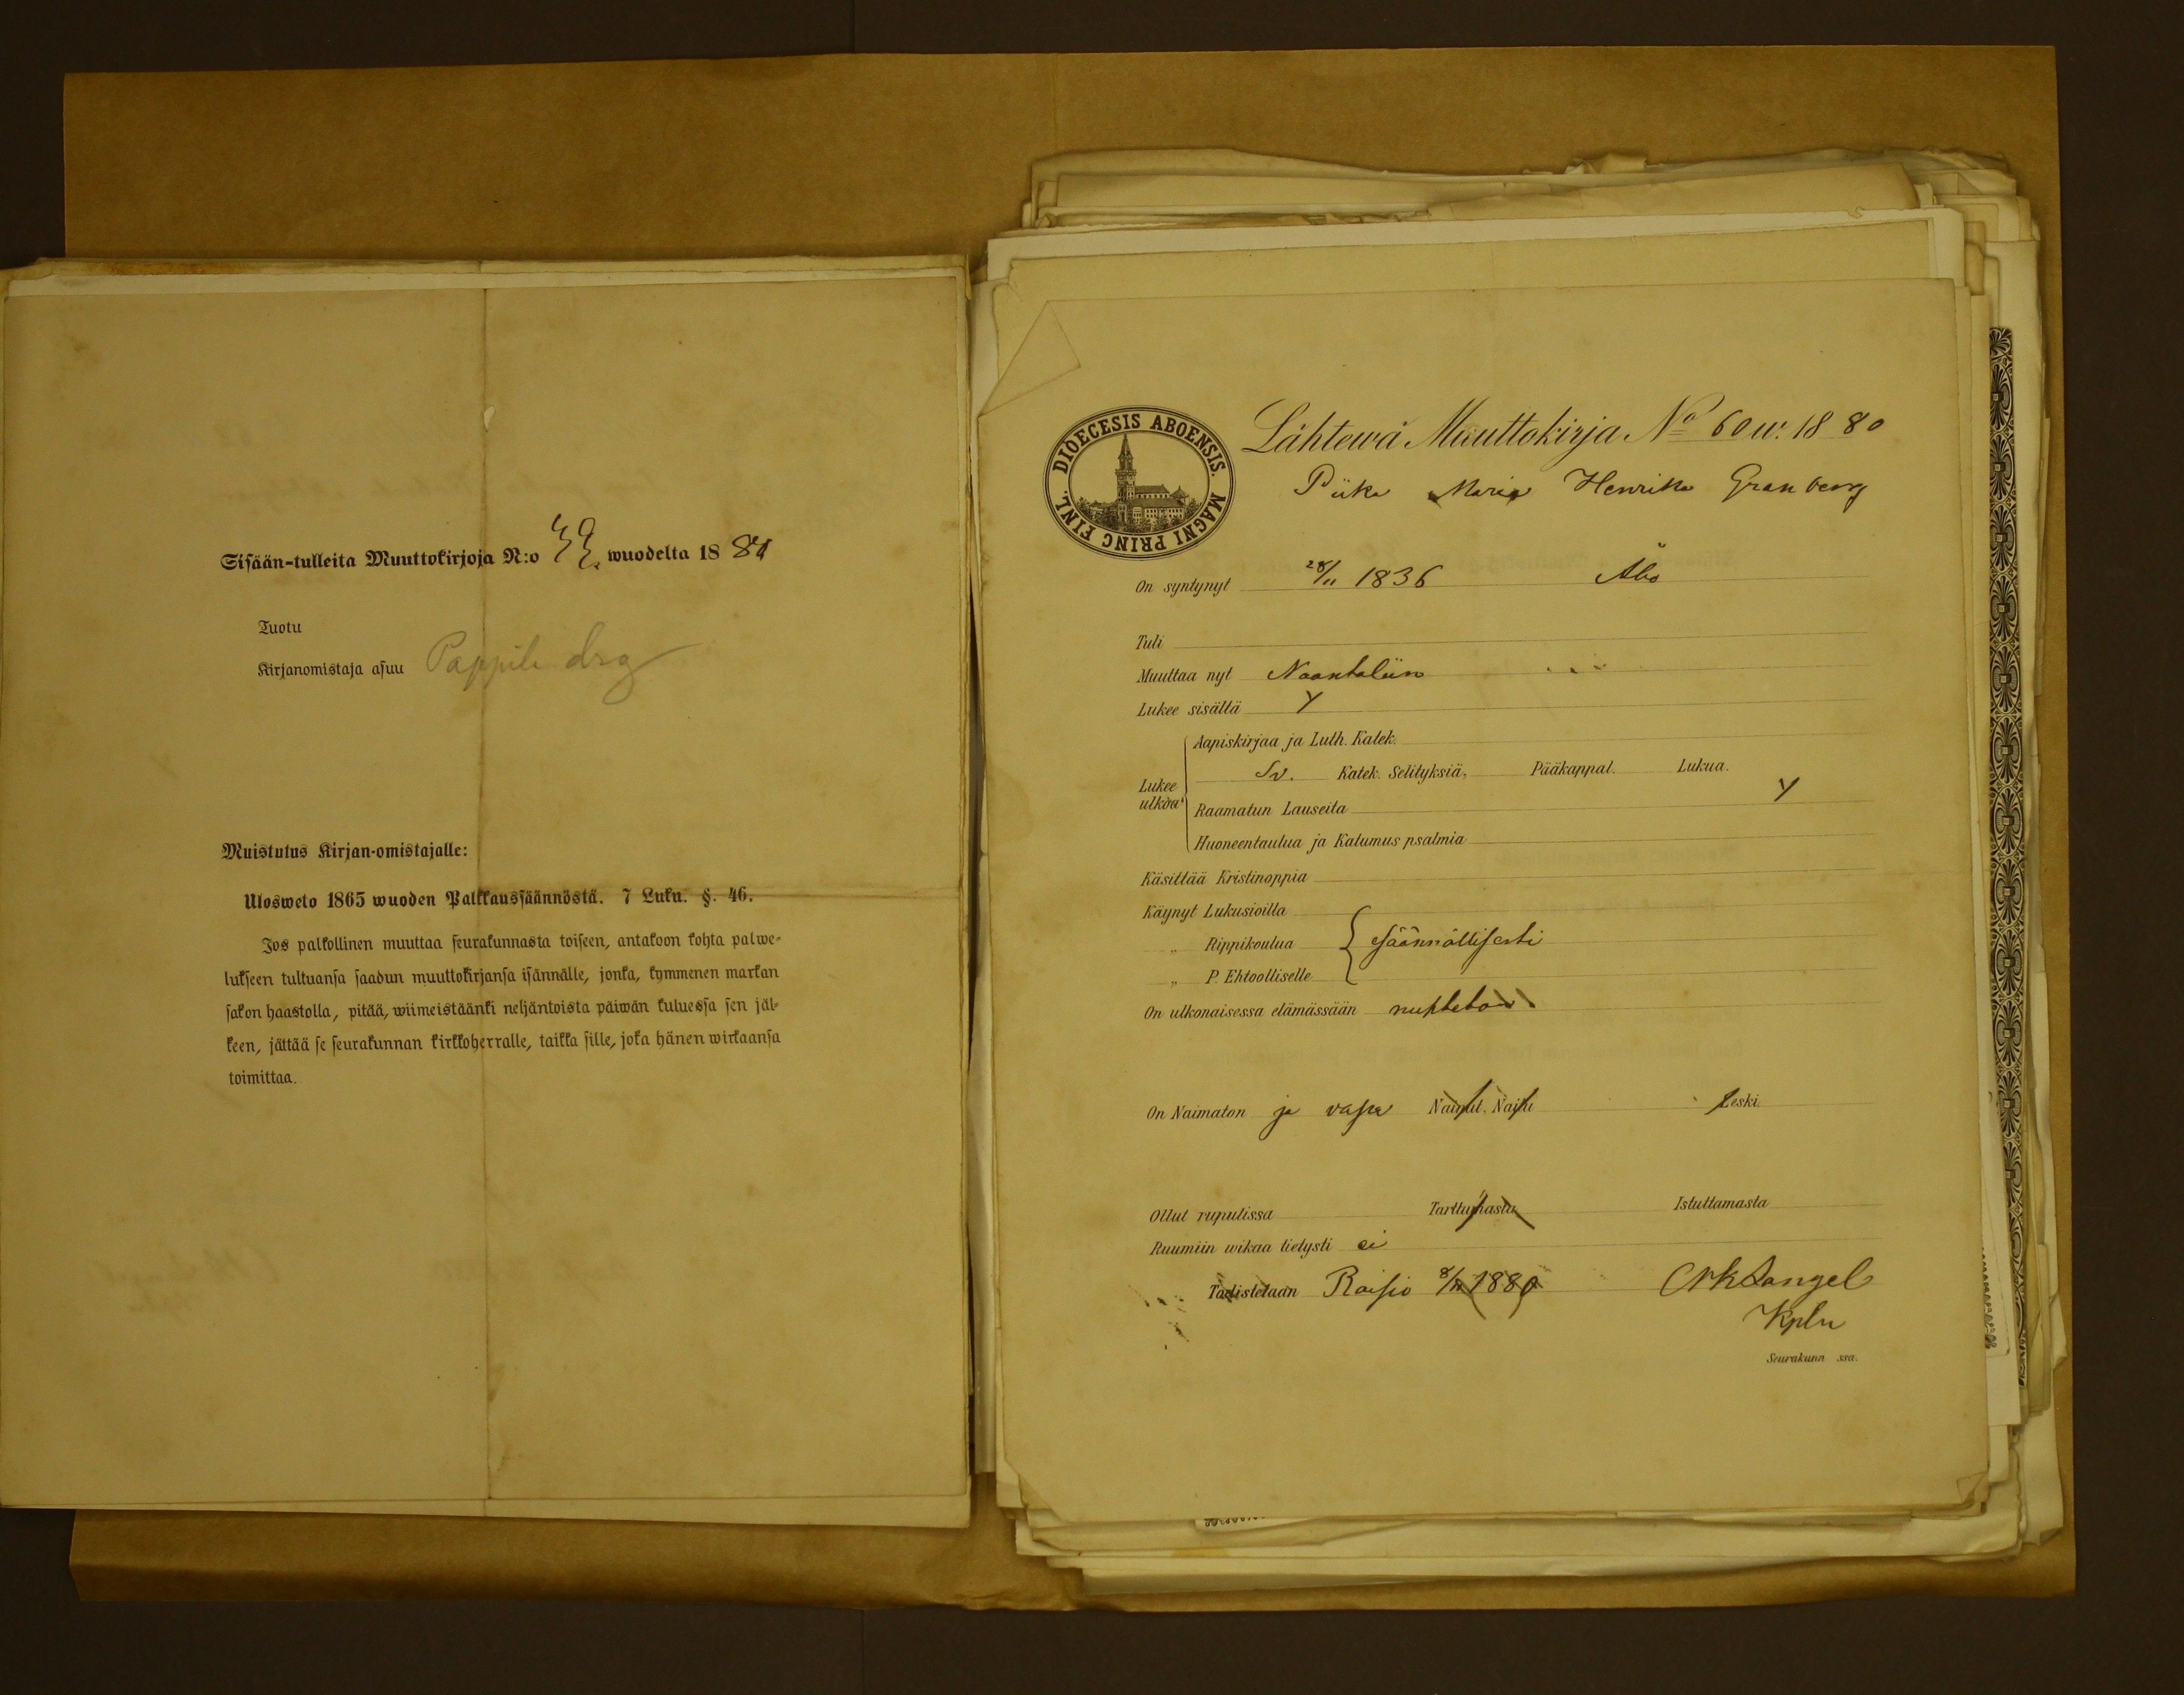 Sisään-tulleita Muuttokirjoja N:o wuodelta 18 80
Tuotu
Kirjanomistaja asuu Pappila
Muistutus Kirjan-omistajalle:
Ulosweto 1865 wuoden Palkkaussäännöstä. 7 Luku. §. 46.
Jos palkollinen muuttaa seurakunnasta toiseen, antakoon kohta palwe-
lukseen tultuansa saadun muuttokirjansa isännälle, jonka, kymmenen markan
sakon haastolla, pitää, wiimeistäänki neljäntoista päiwän kuluessa sen jäl-
keen, jättää se seurakunnan kirkkoherralle, taikka sille, joka hänen wirkaansa
toimittaa.
DIOECESIS ABOENSIS. MAGNI PRINC FINL.
Lähtewä Muuttokirja No 60 w. 18 80
Piika Maria Henrika Granberg
On syntynyt 28/11 1836 Åbo
Tuli
Muuttaa nyt Naantaliin
Lukee sisältä Y
Aapiskirjaa ja Luth. Katek.
Lukee ulkoa
Sv. Katek. Selityksiä, Pääkappal. Lukua.
Raamatun Lauseita Y
Huoneentaulua ja Katumus psalmia
Käsittää Kristinoppia
Käynyt Lukusioilla
„ Rippikoulua säännöllisesti
„ P. Ehtoolliselle
On ulkonaisessa elämässään nuhteton
On Naimaton ja vapa Nainut, Naitu Leski.
Ollut rupulissa Tarttumasta Istuttamasta
Ruumiin wikaa tietysti ei
Todistetaan Raisio 8/11 1880
Kpln
Seurakunn ssa.